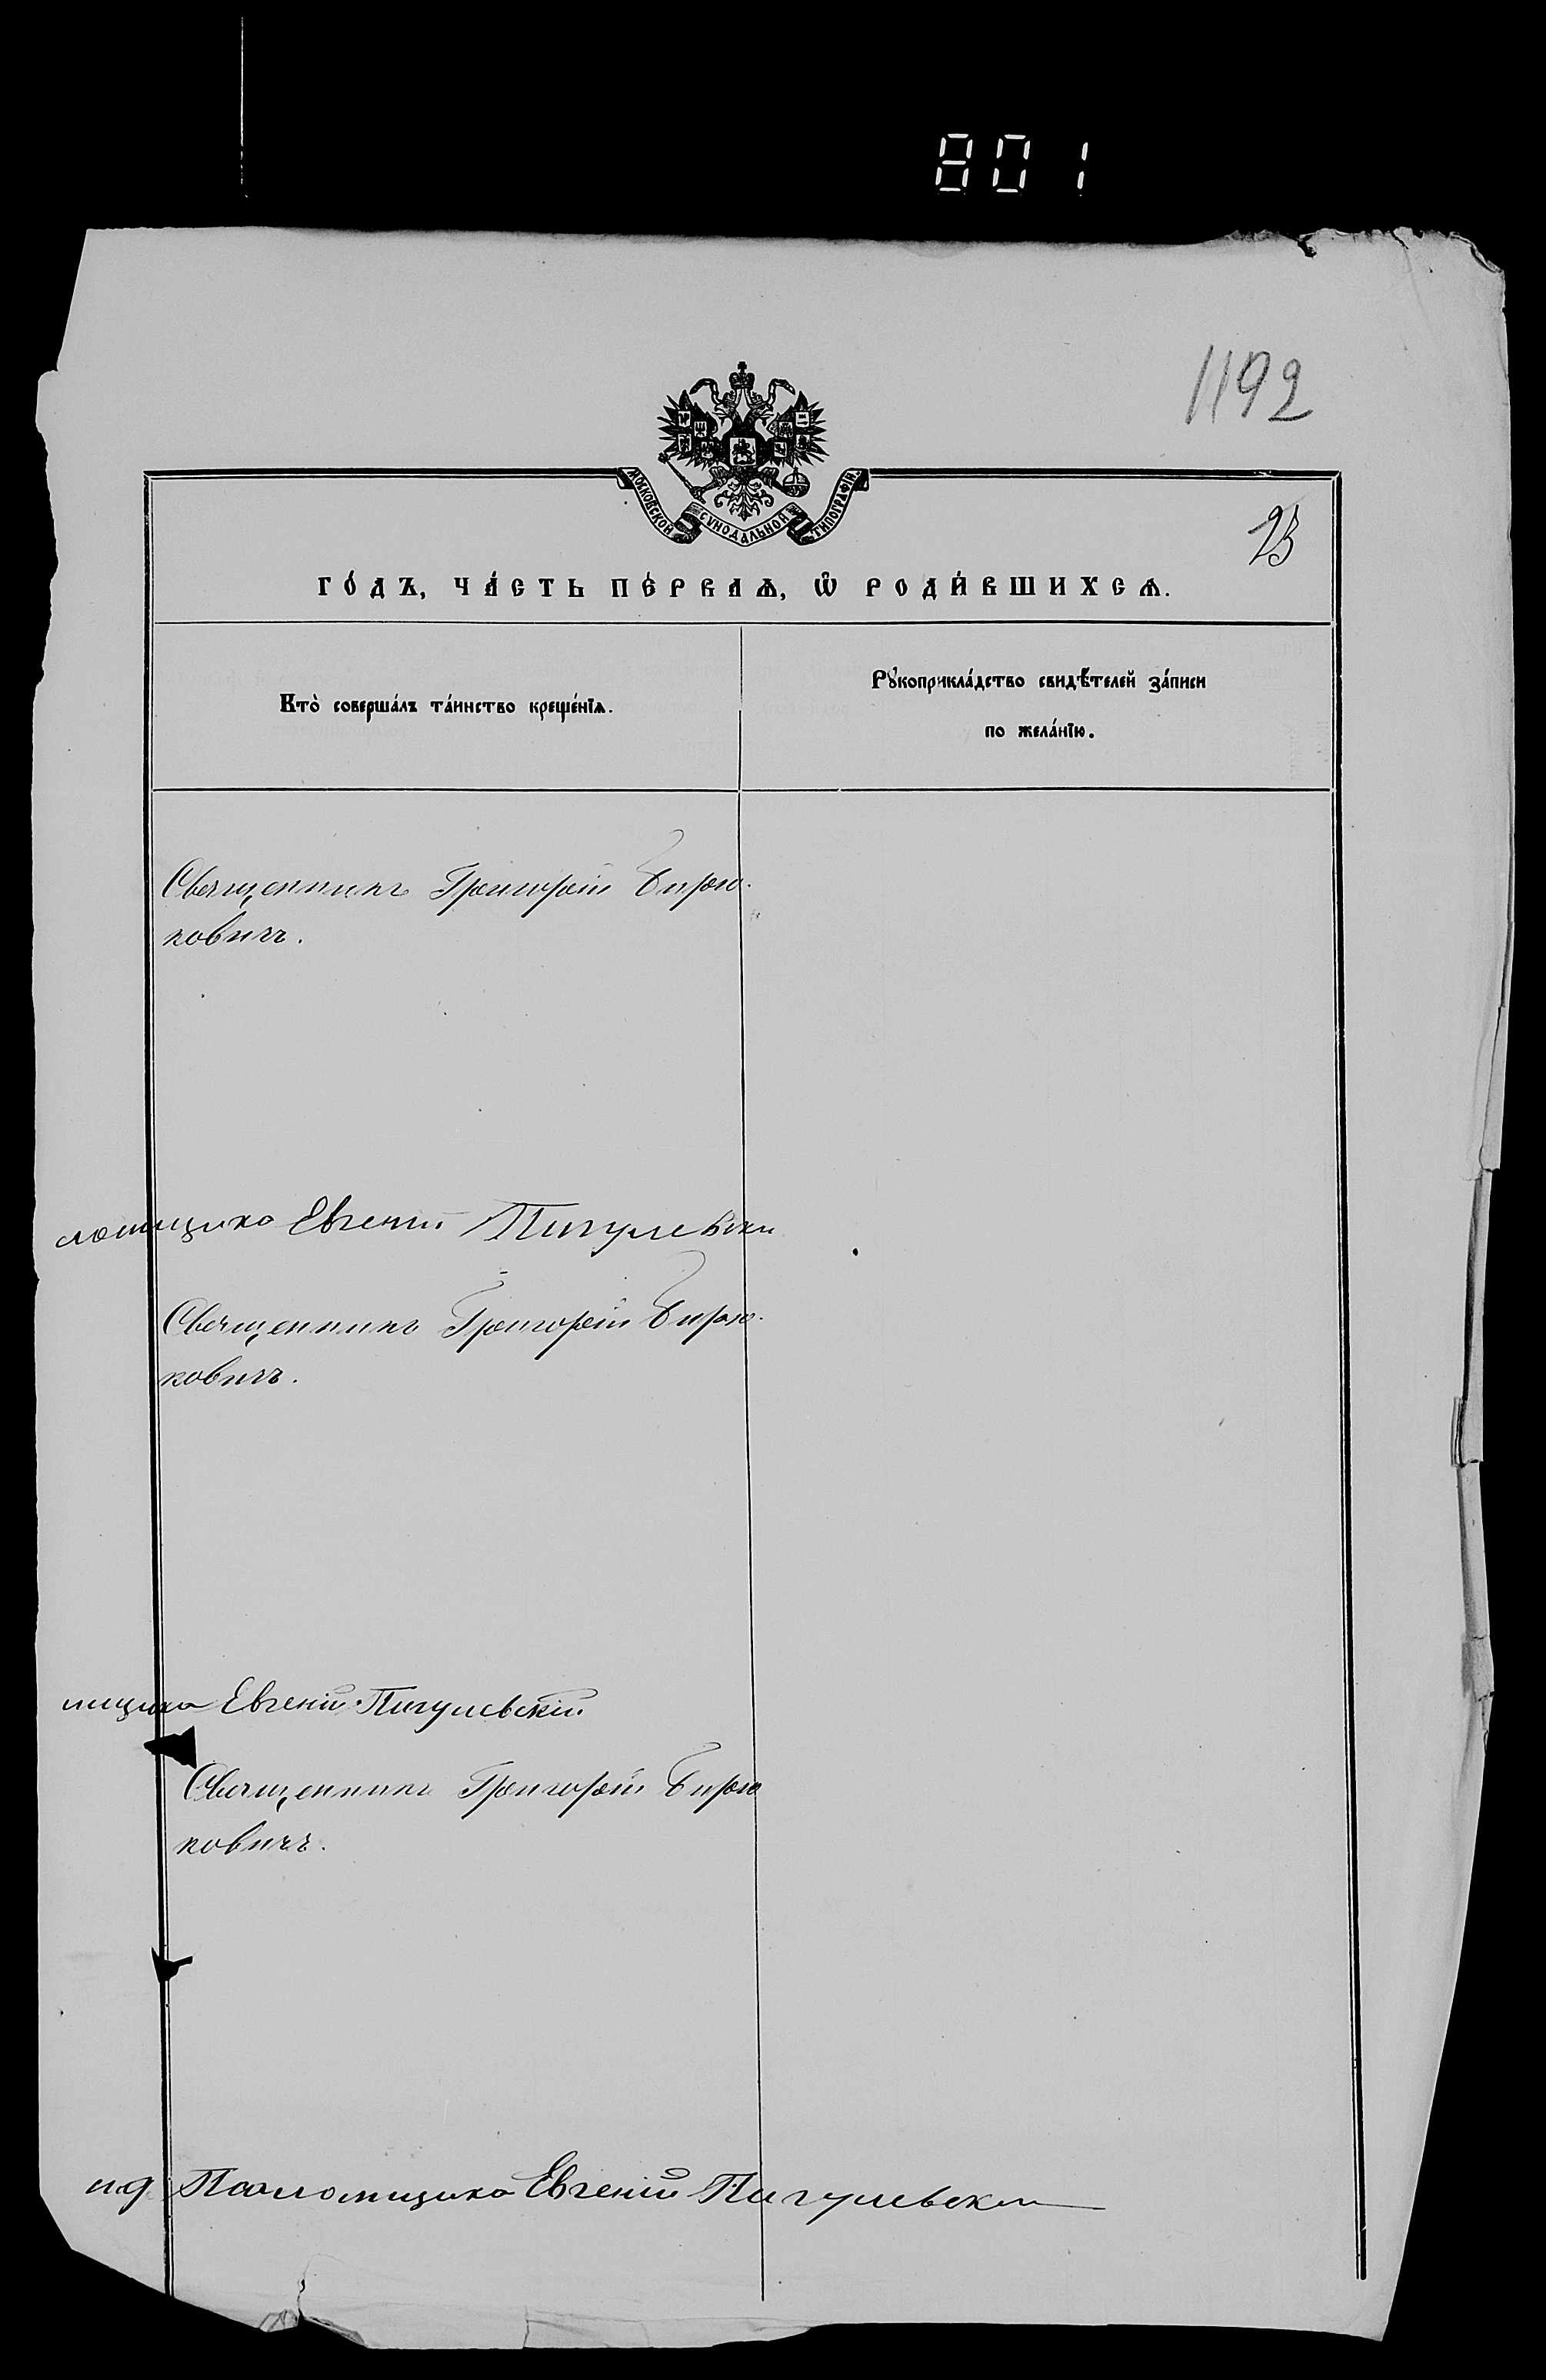 801
1192
МОСКОВСКОЙ СѴНОДАЛЬНОЙ ТИПОГРАФІИ.
23
ГО́ДЪ, ЧА́СТЬ ПЕ́РВАѦ, Ѡ҆ РОДИ́ВШИХСѦ.
Кто̀ соверша́лъ та́инство креще́нїѧ.
Рꙋкоприкла́дство свидѣ́телей за́писи
по жела́нїю.
Священникъ Григорій Бирю-
ковичъ.
ломщикъ Евгеній Пигулевски
Священникъ Григорій Бирю-
ковичъ.
мщикъ Евгеній Пигулевскій
Священникъ Григорій Бирю
ковичъ.
и.д Псаломщика Евгеній Пигулевски